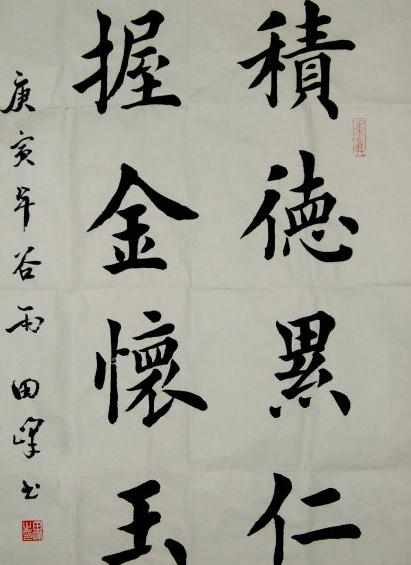 積德累仁
握金懷玉
庚寅年谷雨田峰书